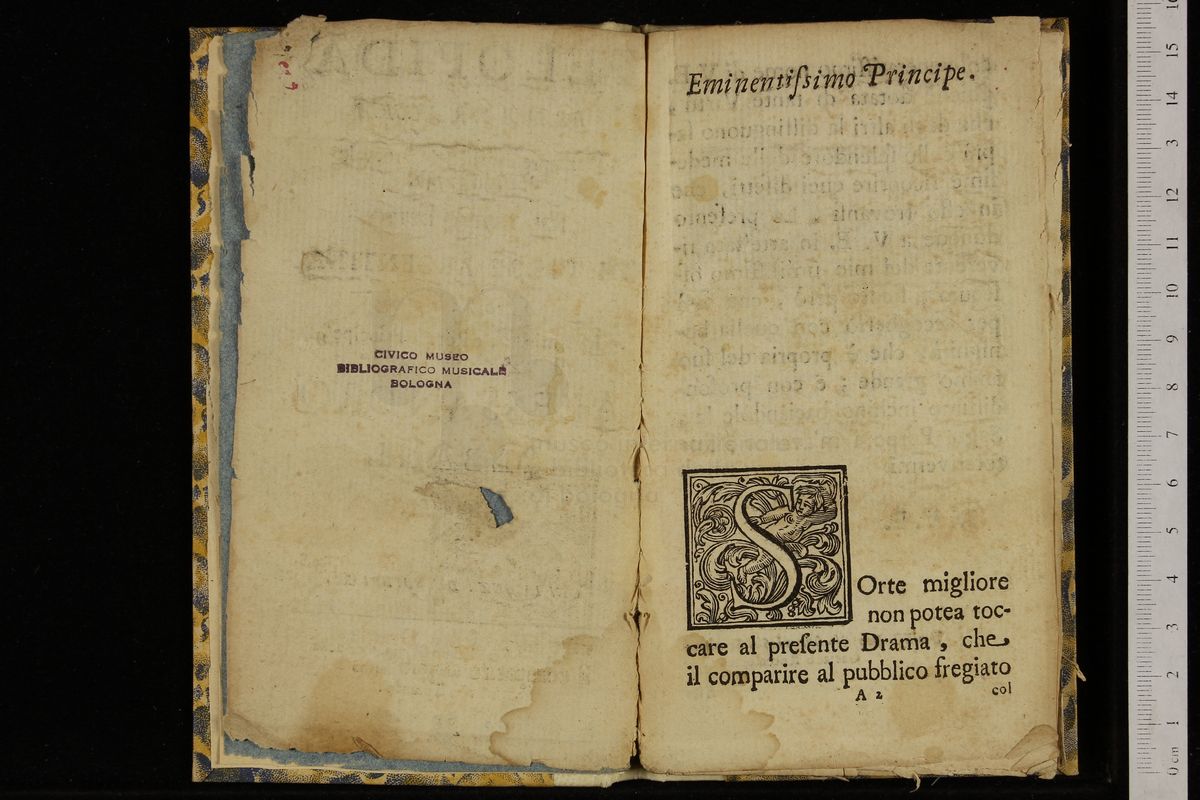 CIVICO MUSEO
BIBLIOGRAFICO MUSICALE
BOLOGNA
Eminentiſsimo Principe.
SOrte migliore
non potea toc-
care al preſente Drama, che
il comparire al pubblico fregiato
A 2
col